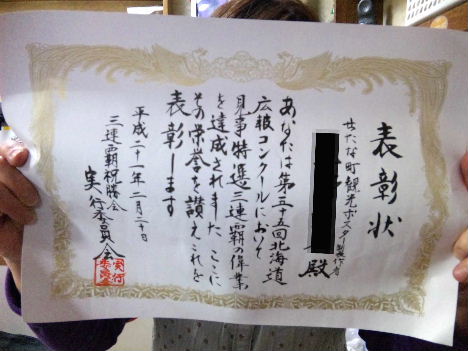 表彰状
せたな町観光ポスター製作者
殿
あなたは第五十五回北海道
広報コンクールにおいて
見事特選三連覇の偉業
を達成されました ここに
その栄誉を讃え これを
表彰します
平成二十一年二月二十日
三連覇祝勝会
実行委員会